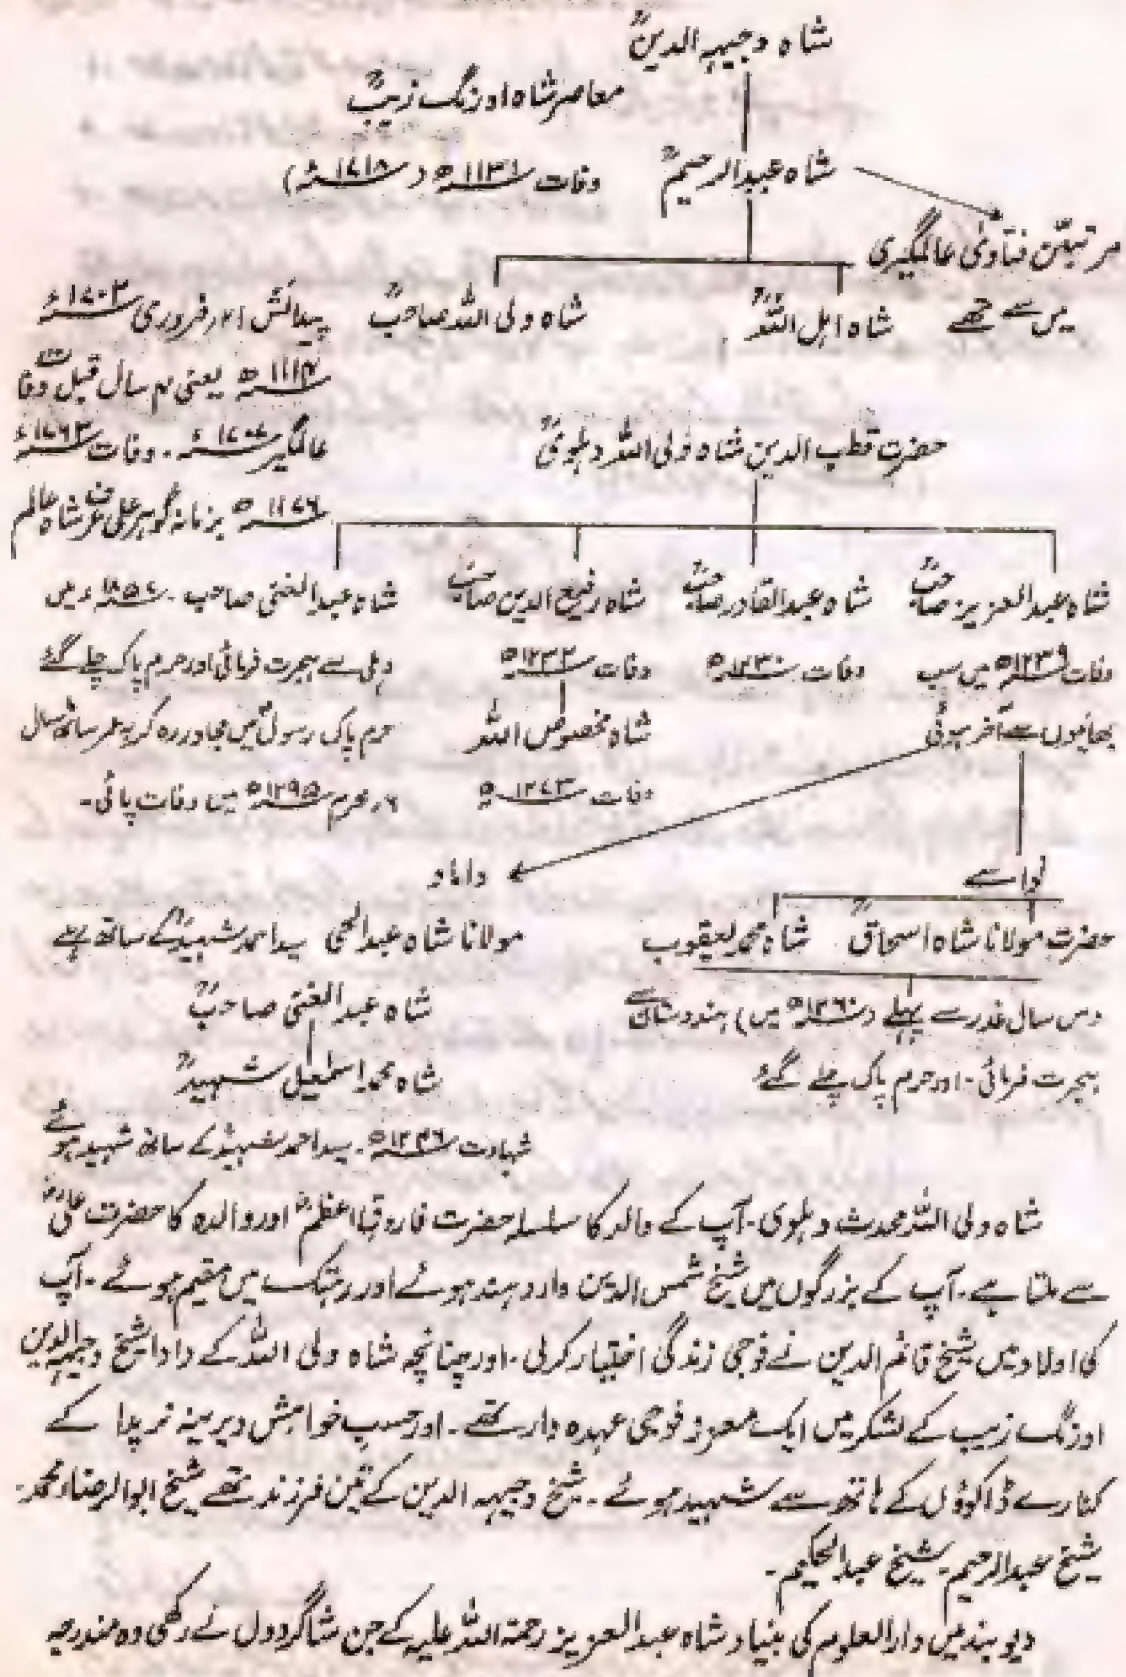 شاہ وجیہہ الدینؒ
معاصر شاہ اورنگ زیبؒ
شاہ عبدالرحیمؒ
وفات ۱۱۳۱ھ (۱۷۱۸ء)
مرتبین فتاویٰ عالمگیری
میں سے تھے
شاہ اہل اللہؒ
شاہ ولی اللہ صاحبؒ
پیدائش ۲۱ر فروری ۱۷۰۳ء
۱۱۱۴ھ یعنی ۴ سال قبل وفات
عالمگیر ۱۷۰۷ء۔ وفات ۱۷۶۳ء
۱۱۷۶ھ بزمانہ گوہر علی عرف شاہ عالم
حضرت قطب الدین شاہ ولی اللہ دہلویؒ
شاہ عبدالعزیز صاحبؒ
وفات ۱۲۳۹ھ میں سب
بھائیوں سے آخر ہوئی
شاہ عبدالقادر صاحبؒ
وفات ۱۲۳۰ھ
شاہ رفیع الدین صاحبؒ
وفات ۱۲۳۳ھ
شاہ مخصوص اللہ
وفات ۱۲۷۳ھ
شاہ عبدالغنی صاحب۔ ۱۸۵۷ء میں
دہلی سے ہجرت فرمائی اور حرم پاک چلے گئے
حرم پاک رسولؐ میں مجاور رہ کر بعمر ساٹھ سال
۶ر محرم ۱۲۹۵ھ میں وفات پائی۔
نواسے
حضرت مولانا شاہ اسحاقؒ
شاہ محمد یعقوب
دس سال غدر سے پہلے (۱۲۶۰ھ میں) ہندوستان سے
ہجرت فرمائی۔ اور حرم پاک چلے گئے
داماد
مولانا شاہ عبدالحی سید احمد شہیدؒ کے ساتھ رہے
شاہ عبدالغنی صاحبؒ
شاہ محمد اسمٰعیل شہیدؒ
شہادت ۱۲۴۶ھ۔ سید احمد شہیدؒ کے ساتھ شہید ہوئے
شاہ ولی اللہ محدث دہلوی۔ آپ کے والد کا سلسلہ حضرت فاروق اعظمؓ اور والدہ کا حضرت علیؓ
سے ملتا ہے۔ آپ کے بزرگوں میں شیخ شمس الدین وارد ہند ہوئے اور رہتک میں مقیم ہوئے۔ آپ
کی اولاد میں شیخ قائم الدین نے فوجی زندگی اختیار کرلی۔ اور چنانچہ شاہ ولی اللہ کے دادا شیخ وجیہہ الدین
اورنگ زیب کے لشکر میں ایک معزز فوجی عہدہ دار تھے۔ اور حسب خواہش دیرینہ نربدا کے
کنارے ڈاکوؤں کے ہاتھ سے شہید ہوئے۔ شیخ وجیہہ الدین کے تین فرزند تھے شیخ ابوالرضاء محمد۔
شیخ عبدالرحیم۔ شیخ عبدالحکیم۔
دیوبند میں دارالعلوم کی بنیاد شاہ عبدالعزیز رحمۃ اللہ علیہ کے جن شاگردوں نے رکھی وہ مندرجہ